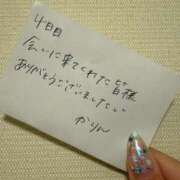 4日目
会いに来てくれた皆様
ありがとうございました
かりん